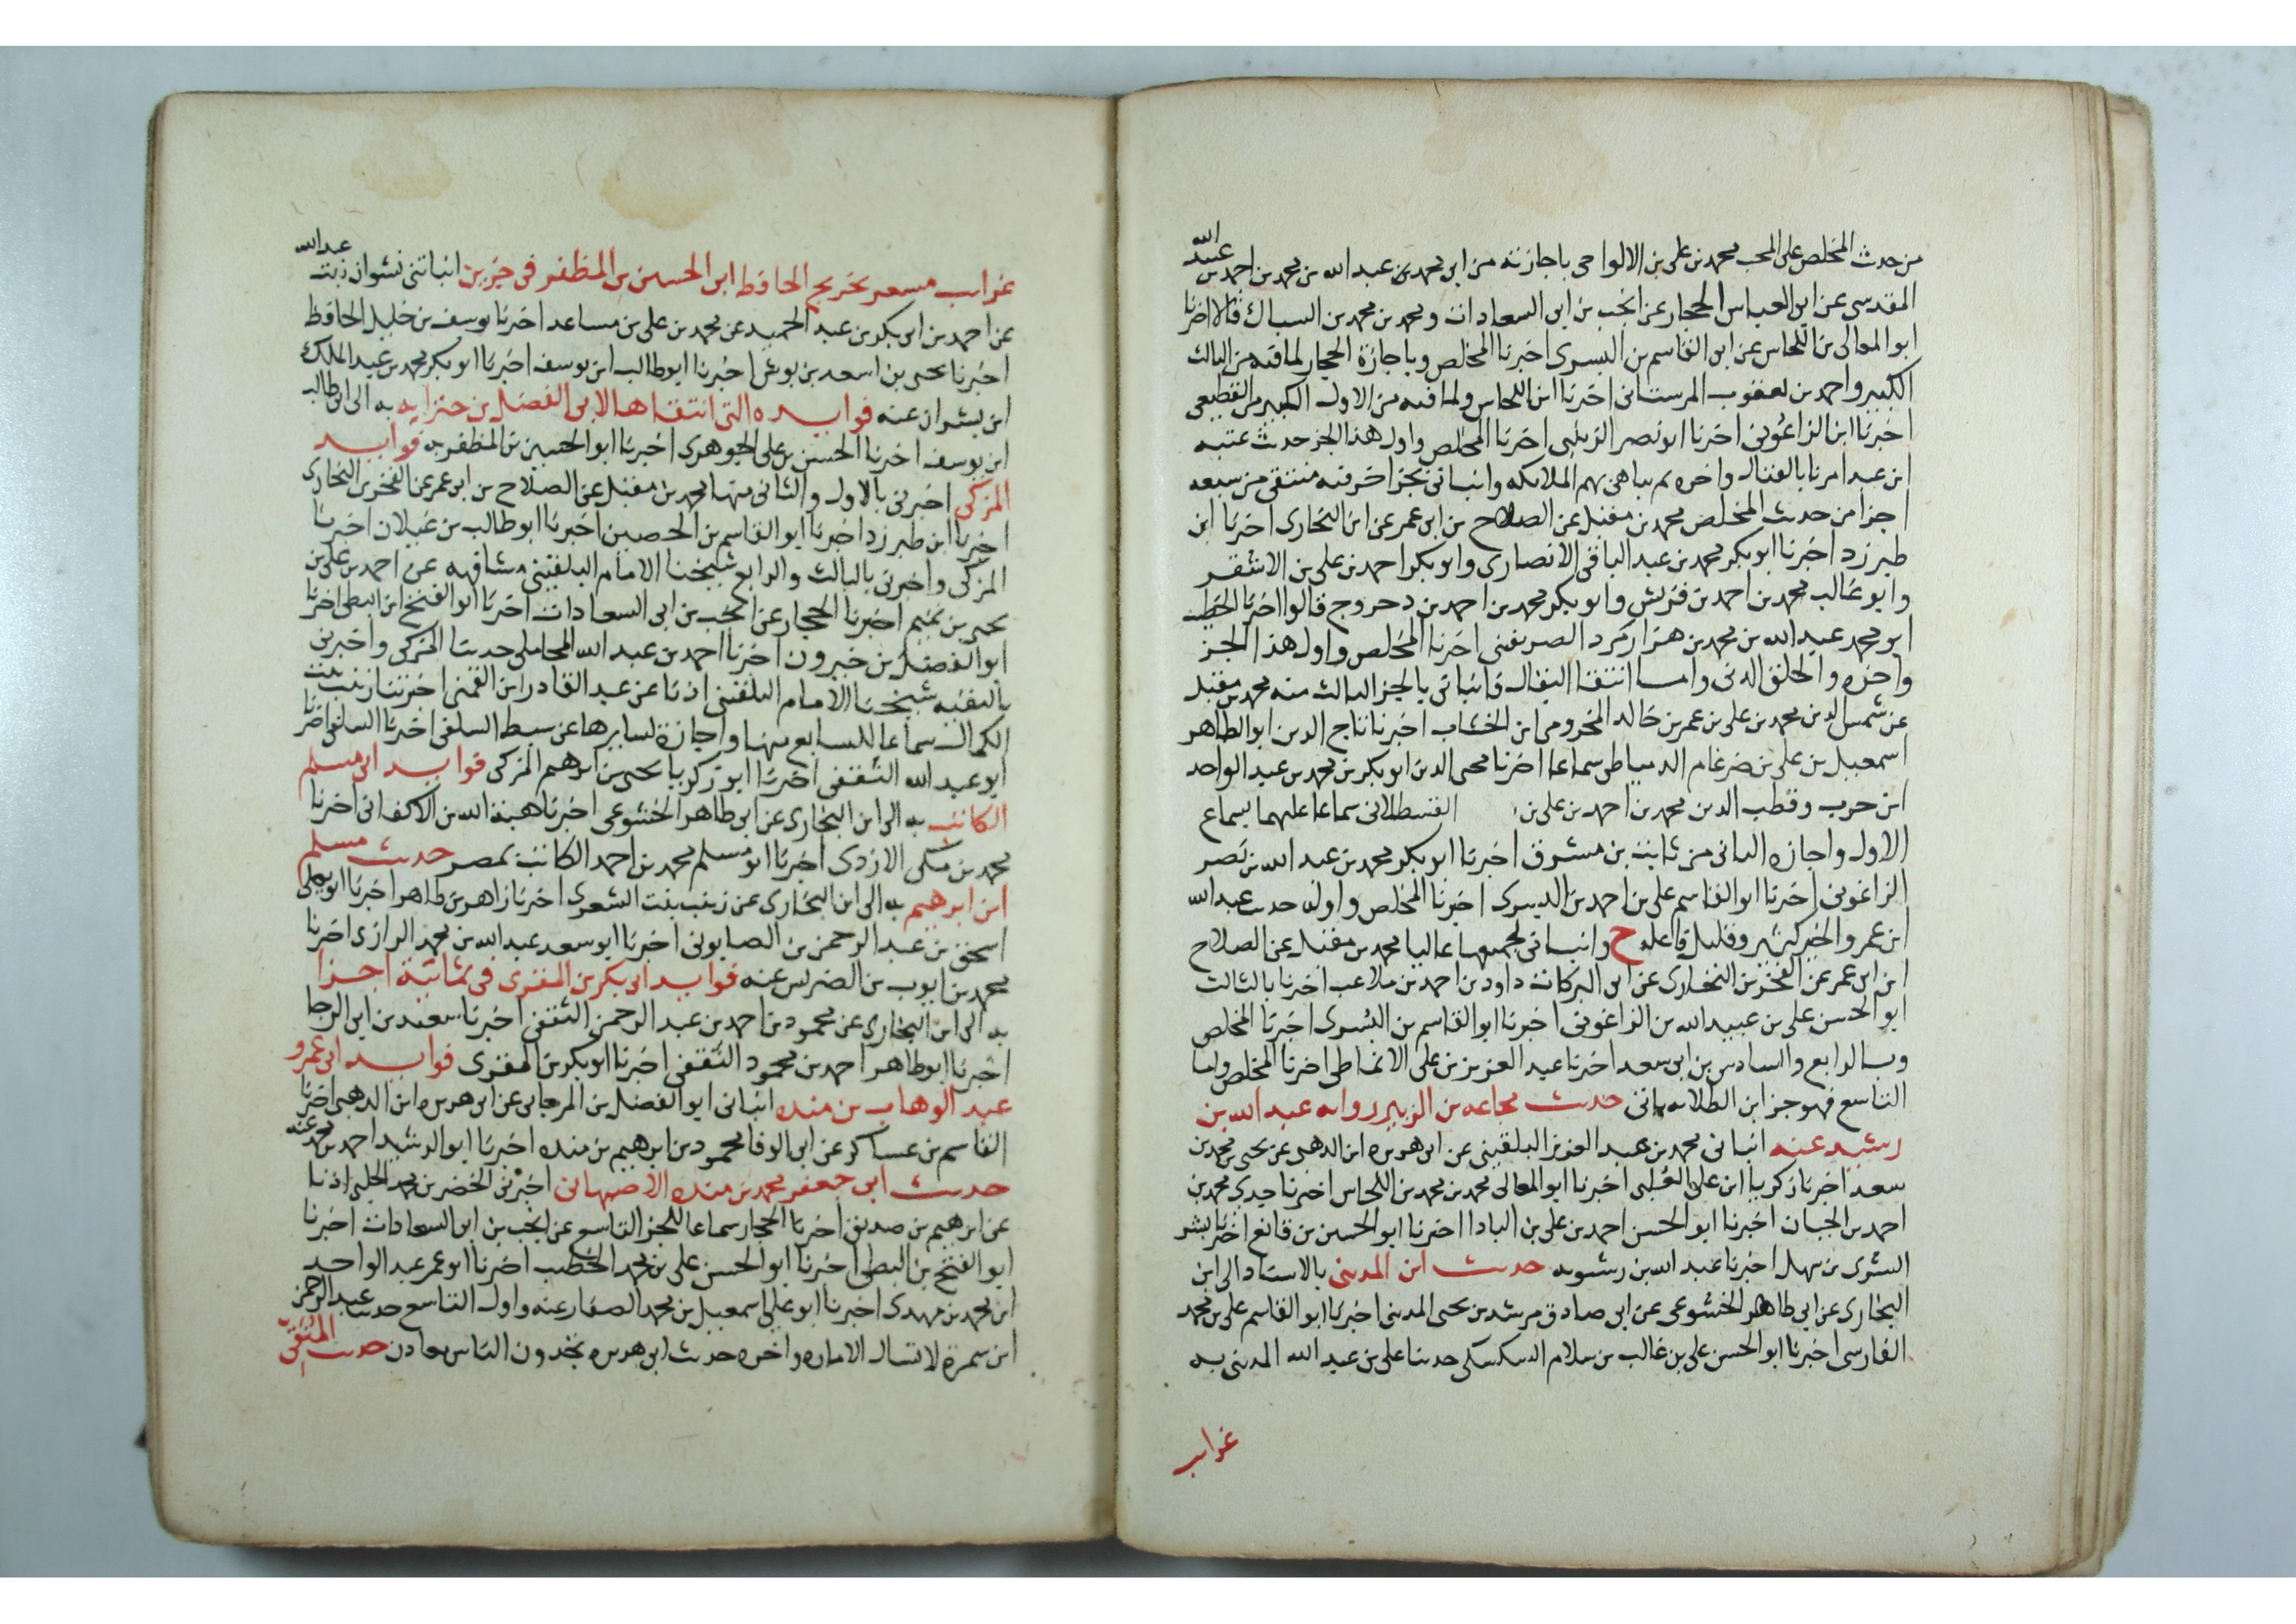 من حديث المخلص على المحب محمد بن على بن الالواحى باجازته من ابى محمد بن عبد الله بن محمد بن احمد بن عبيد الله
المقدسى عن ابى العباس الحجار عن انجب بن ابى السعادات ومحمد بن محمد بن السباك قالا اخبرنا
ابو المعالى بن اللحاس عن ابى القاسم بن البسرى اخبرنا المخلص وباجازة الحجار لما فيه من الثالث
الكبير واحمد بن يعقوب المرستانى اخبرنا ابن اللحاس ولما فيه من الاول الكبير من القطيعى
اخبرنا ابن الزاغونى اخبرنا ابو نصر الزينبى اخبرنا المخلص واول هذا الجز حديث عتبه
ابن عبد امرنا بالقتال واخره ثم يباهى بهم الملايكه وانبانى بجز اخر فيه منتقى من سبعه
اجزا من حديث المخلص محمد بن مقبل عن الصلاح بن ابى عمر عن ابن البخارى اخبرنا ابن
طبرزد اخبرنا ابو بكر محمد بن عبد الباقى الانصارى وابو بكر احمد بن على بن الاشقر
وابو غالب محمد بن احمد بن قريش وابو بكر محمد بن احمد بن دحروج قالوا اخبرنا الخطيب
ابو محمد عبد الله بن محمد بن هزارمرد الصريفينى اخبرنا المخلص واول هذا الجز
واخره والخلق الدنى واما انتقا البقال فانبانى بالجز الثالث منه محمد بن مقبل
عن شمس الدين محمد بن على بن عمر بن خالد المخزومى ابن الخشاب اخبرنا تاج الدين ابو الطاهر
اسمعيل بن على بن ضرغام الدمياطى سماعا اخبرنا محى الدين ابو بكر بن محمد بن عبد الواحد
ابن حرب وقطب الدين محمد بن احمد بن على بن القسطلانى سماعا عليهما بسماع
الاول واجازه الثانى من ثابت بن مشرف اخبرنا ابو بكر محمد بن عبد الله بن نصر
الزاغونى اخبرنا ابو القاسم على بن احمد بن البسرى اخبرنا المخلص واوله حديث عبد الله
ابن عمرو الخير كثير وقليل فاعله ح وانبانى بجميعها عاليا محمد بن مقبل عن الصلاح
ابن ابى عمر عن الفخر بن البخارى عن ابى البركات داود بن احمد بن ملاعب اخبرنا بالثالث
ابو الحسن على بن عبيد الله بن الزاغونى اخبرنا ابو القاسم بن البسرى اخبرنا المخلص
وبالرابع والسادس بن ابى سعد اخبرنا عبد العزيز بن على الانماطى اخبرنا المخلص واما
التاسع فهو جز ابن الطلايه ياتى حديث مجاعه بن الزبير روايه عبد الله بن
رشيد عنه انبانى محمد بن عبد العزيز البلقينى عن ابى هريره ابن الذهبى عن يحيى بن محمد بن
سعد اخبرنا زكريا ابن على العلبى اخبرنا ابو المعالى محمد بن محمد بن اللحاس اخبرنا جدى محمد بن
احمد بن الجبان اخبرنا ابو الحسن احمد بن على بن البادا اخبرنا ابو الحسين بن قانع اخبرنا بشر
السرى بن سهل اخبرنا عبد الله بن رشيد به حديث ابن المدينى بالاسناد الى ابن
البخارى عن ابى طاهر الخشوعى عن ابى صادق مرشد بن يحيى المدينى اخبرنا ابو القاسم على بن محمد
الفارسى اخبرنا ابو الحسن على بن غالب بن سلام السكسكى حدثنا على بن عبد الله المدينى به
غرايب
غرايب مسعر تخريج الحافظ ابى الحسين بن المظفر فى جزين انباتنى نشوان بنت عبد الله
عن احمد بن ابى بكر بن عبد الحميد عن محمد بن على بن مساعد اخبرنا يوسف بن خليل الحافظ
اخبرنا يحيى بن اسعد بن بوش اخبرنا ابو طالب ابن يوسف اخبرنا ابو بكر محمد بن عبد الملك
ابن بشران عنه فوايده التى انتقاها لابى الفضل بن حنزابه به الى ابى طالب
ابن يوسف اخبرنا الحسن بن على الجوهرى اخبرنا ابو الحسين بن المظفر به فوايد
المزكى اخبرنى بالاول والثانى منها محمد بن مقبل عن الصلاح بن ابى عمر عن الفخر بن البخارى
اخبرنا ابن طبرزد اخبرنا ابو القاسم بن الحصين اخبرنا ابو طالب بن غيلان اخبرنا
المزكى واخبرنى بالثالث والرابع شيخنا الامام البلقينى مشافهه عن احمد بن على بن
يحيى بن تميم اخبرنا الحجار عن انجب بن ابى السعادات اخبرنا ابو الفتح ابن البطى اخبرنا
ابو الفضل بن خيرون اخبرنا احمد بن عبد الله المحاملى حدثنا المزكى واخبرنى
بالبقيه شيخنا الامام البلقينى اذنا عن عبد القادر ابن القمنى اخبرتنا زينب بنت
الكمال سماعا للسابع منها واجازة لسايرها عن سبط السلفى اخبرنا السلفى اخبرنا
ابو عبد الله الثقفى اخبرنا ابو زكريا يحيى بن ابرهيم المزكى فوايد ابى مسلم
الكاتب به الى ابن البخارى عن ابى طاهر الخشوعى اخبرنا هبة الله بن الاكفانى اخبرنا
محمد بن مكى الازدى اخبرنا ابو مسلم محمد بن احمد الكاتب بمصر حديث مسلم
ابن ابرهيم به الى ابن البخارى عن زينب بنت الشعرى اخبرنا زاهر بن طاهر اخبرنا ابو يعلى
اسحق بن عبد الرحمن بن الصابونى اخبرنا ابو سعد عبد الله بن محمد الرازى اخبرنا
محمد بن ايوب بن الضريس عنه فوايد ابى بكر بن المقرى فى ثمانية اجزا
به الى ابن البخارى عن محمود بن احمد بن عبد الرحمن الثقفى اخبرنا سعيد بن ابى الرجا
اخبرنا ابو طاهر احمد بن محمود الثقفى اخبرنا ابو بكر بن المقرى فوايد ابى عمرو
عبد الوهاب بن منده انبانى ابو الفضل بن المرجانى عن ابى هريره ابن الذهبى اخبرنا
القاسم بن عساكر عن ابى الوفا محمود بن ابرهيم بن منده اخبرنا ابو الرشيد احمد بن محمد عنه
حديث ابى جعفر محمد بن منده الاصبهانى اخبرنى الخضر بن محمد الحلبى اذنا
عن ابرهيم بن صديق اخبرنا الحجار سماعا للجز التاسع عن انجب بن ابى السعادات اخبرنا
ابو الفتح بن البطى اخبرنا ابو الحسن على بن محمد الخطيب اخبرنا ابو عمر عبد الواحد
ابن محمد بن مهدى اخبرنا ابو على اسمعيل بن محمد الصفار عنه واول التاسع حديث عبد الرحمن
ابن سمرة لا تسال الاماره واخره حديث ابى هريره تجدون الناس معادن حديث المتقى